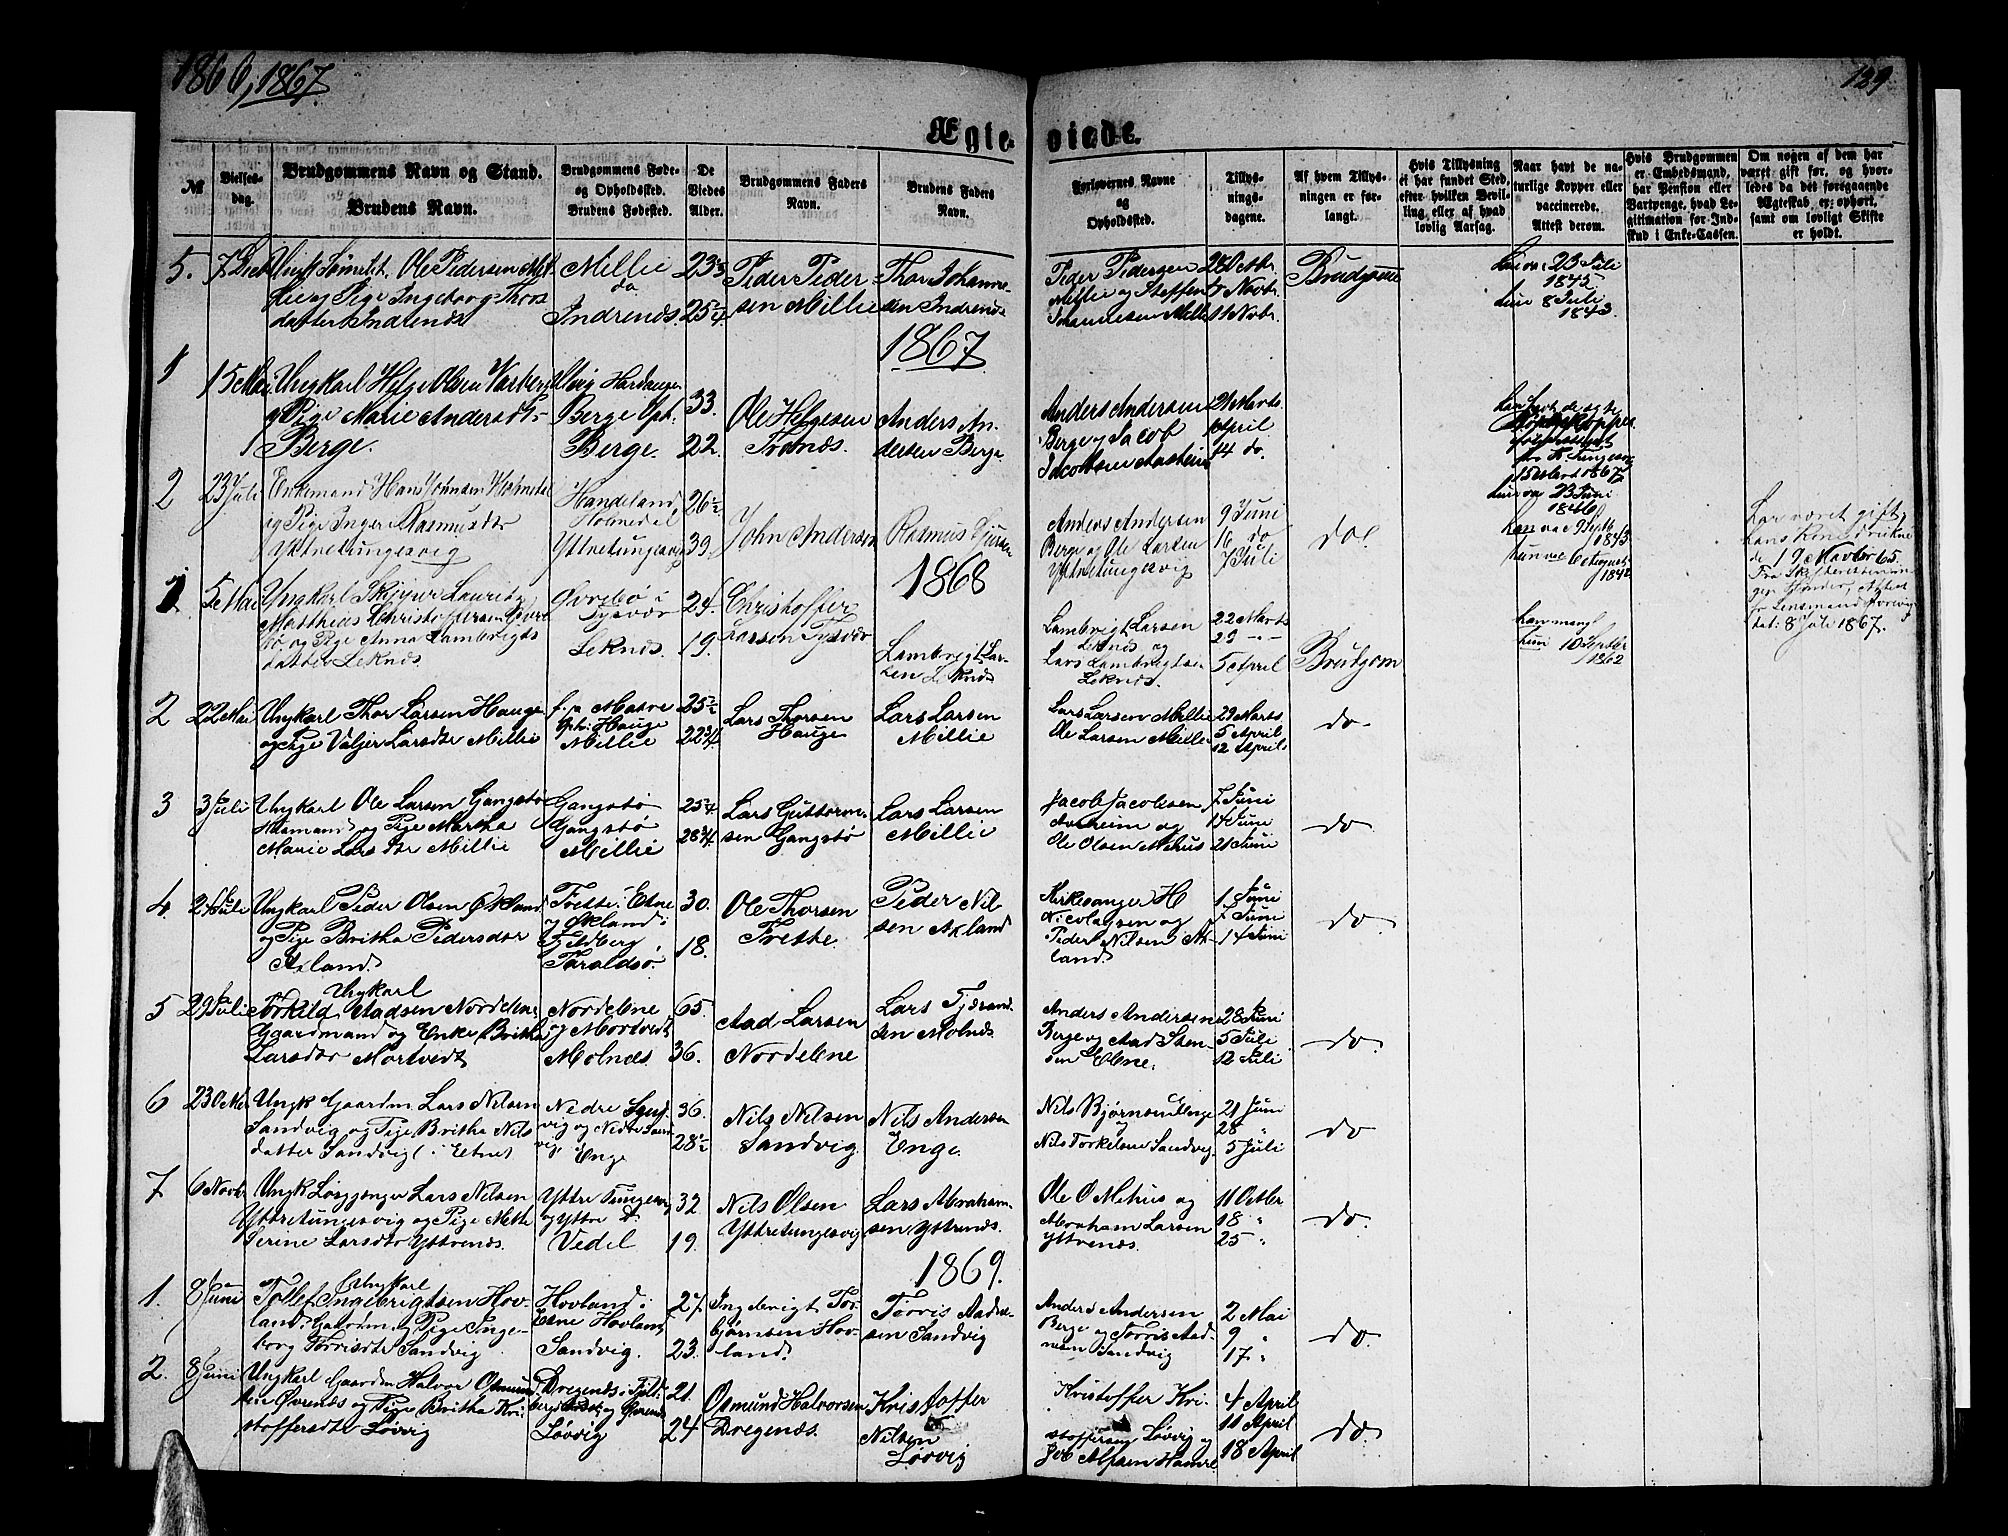 1866, 1867.
139
Ægte-
viede.
№
Vielses-
dag.
Brudgommens Navn og Stand.
Brudens Navn.
Brudgommens Føde-
og Opholdsted.
Brudens Fødested.
De
Viedes
Alder.
Brudgommens Faders
Navn.
Brudens Faders
Navn.
Forlovernes Navne
og
Opholdsted.
Tillys-
nings-
dagene.
Af hvem Tillys-
ningen er for-
langt.
Hvis Tillysning
ei har fundet Sted,
efter hvilken Bevil-
ling, eller af hvad
lovlig Aarsag.
Naar havt de na-
turlige Kopper eller
vaccinerede.
Attest derom.
Hvis Brudgommen
er Embedsmand,
har Pension eller
Vartpenge, hvad Le-
gitimation for Ind-
skud i Enke-Cassen.
Om nogen af dem har
været gift før, og hvor-
ledes da det foregaaende
Ægteskab er ophørt,
samt om lovligt Skifte
er holdt.
5.
Ole Pedersen Mil-
lie og Pige Ingeborg Thors
datter Indrenæs
Millie
do
Indrenæs.
Peder Peder
sen Millie
Thor Johanne-
sen Indrenæs
Peder Pedersen
Millie og Steffen
Johannesen Millie
28 Octbr.
11 Novbr.
Brudgommen
23 Juli
1845
hun 8 Juli
1843.
1867
1
15 Mai
Ungkarl Helge Olsen Varberg
og Pige Marie Andersdtr
Berge.
Ulvig Hardanger
Berge Oph.
Berge.
33.
22.
Ole Helgesen
Anders An-
dersen Berge.
Anders Andersen
Berge og Jacob
Jacobsen Aasheim
21 Marts
April
14 do.
15 Marts 1867.
hun va 23 Juni
1846
2
23 Juli
Enkemand Hans Johnsen Holmedal
og Pige Inger Rasmusdtr
Yttretungesvig
Handeland,
Holmedal
Yttretungesvig
26½
39.
John Andersen
Rasmus
Anders Andersen
Berge og Ole Larsen
Yttretungesvig
9 Juni
16 do
7 Juli
do.
han vac 9 Septb
1843
hun vac 6 August
1842
har været gift,
hans Kone druknede
de 19 Novbr 65.
8 Juli 1867.
1868
1
5 Mai
Ungkarl Skipper Laurits
Matthias Christoffersen Øvre-
bø, og Pige Anna Lambrigts
datter Leknæs
Øvrebø i
Tysvær
Leknæs.
24.
19.
Christoffer
Larsen Tysvær
Lambrigt Lar-
sen Leknæs
Lambrigt Larsen
Leknæs og
Lars Lambrigtsen
Leknæs.
22 Marts
29 " "
5 April
Brudgom
han mangl
hun 10 Septbr
1862
2
22 Mai
Ungkarl Thor Larsen Hauge
og Pige Valjer Larsdtr Millie
Oph: Hauge
Millie
25½
22¾
Lars Thorsen
Hauge
Lars Larsen
Millie
Lars Larsen Millie
Ole Larsen Millie
29 Marts
5 April
12 April
do.
3
3 Juli
Ungkarl Ole Larsen Gangstø
Husmand og Pige Martha
Marie Larsdtr Millie
Gangstø
Gangstø
Millie
25¼
28¾
Lars Guttorm-
sen Gangstø
Lars Larsen
Millie
Jacob Jacobsen
Aasheim og
Ole Olsen Mehus
7 Juni
14 Juni
21 Juni
do.
4.
24 Juli
Ungkarl Peder Olsen Økland
og Pige Britha Pedersdtr
Axland.
Frette i Etne
og Økland i
Fjelberg
Taraldsø.
30.
18.
Ole Thorsen
Frette.
Peder Nil
sen Axland
Kirkesanger H
Nicolaysen og
Peder Nilsen Ak-
land.
1 Juni
7 Juni
14 Juni
do.
5
29 Juli
Ungkarl
Torkild Aadsen Nordelene
Ggaardmand og Enke Britha
Larsdtr Mortvedt
Nordelene
og Mortvedt
Molnæs
65.
36.
Aad Larsen
Nordelene
Lars Tjærand
sen Molnæs
Anders Andersen
Berge og Aad Sten-
sen Elene.
28 Juni
5 Juli
12 Juli
do.
6
23 Octbr.
Ungk Gaardm. Lars Nilsen
Sandvig og Pige Britha Nils
datter Sandvig i Etne
Nedre Sand
vig og Nedre Sand
vig
Enge
36.
28½
Nils Nilsen
Sandvig
Nils Andersen
Enge.
Nils Bjørnsen Enge
og
Nils Torkelsen Sandvig.
21 Juni
28 "
5 Juli
do
7
6 Novbr
Ungk Løsgjænger Lars Nilsen
Yttretungesvig og Pige Mette
Serine Larsdtr Yttrenæs.
Yttre Tungesvig
og Yttre T.
Vedel
32
19.
Nils Olsen
Yttretungesvig
Lars Abraham-
sen Yttrenæs.
Ole O Mehus og
Abraham Larsen
Yttrenæs.
11 Octbr
18 "
25 "
do.
1869.
1.
8 Juni
Ungkarl
Tollef Ingebrigtsen Hov-
land Gaardm. og Pige Inge-
borg Torrisdtr Sandvig
Hovland i
Etne Hovland
Sandvig.
27.
23.
Ingebrigt Tor-
bjørnsen Hov-
land.
Torris Aadne-
sen Sandvig
Anders Andersen
Berge og Torris Aad-
nesen Sandvig
2 Mai
9 "
17 "
do.
2.
8 Juni
Ungkarl Gaardm Halvor Osmund
sen Øvrenæs og Pige Britha Kri-
stoffersdtr Løvvig
Dregenæs i Fjel-
berg og Øvrenæs
Løvvig
21.
24
Osmund Halvorsen
Dregenæs.
Kristoffer
Nilsen
Løvvig
Kristoffer Kri-
stoffersen Løvvig og
4 April
11 April
18 April
do.